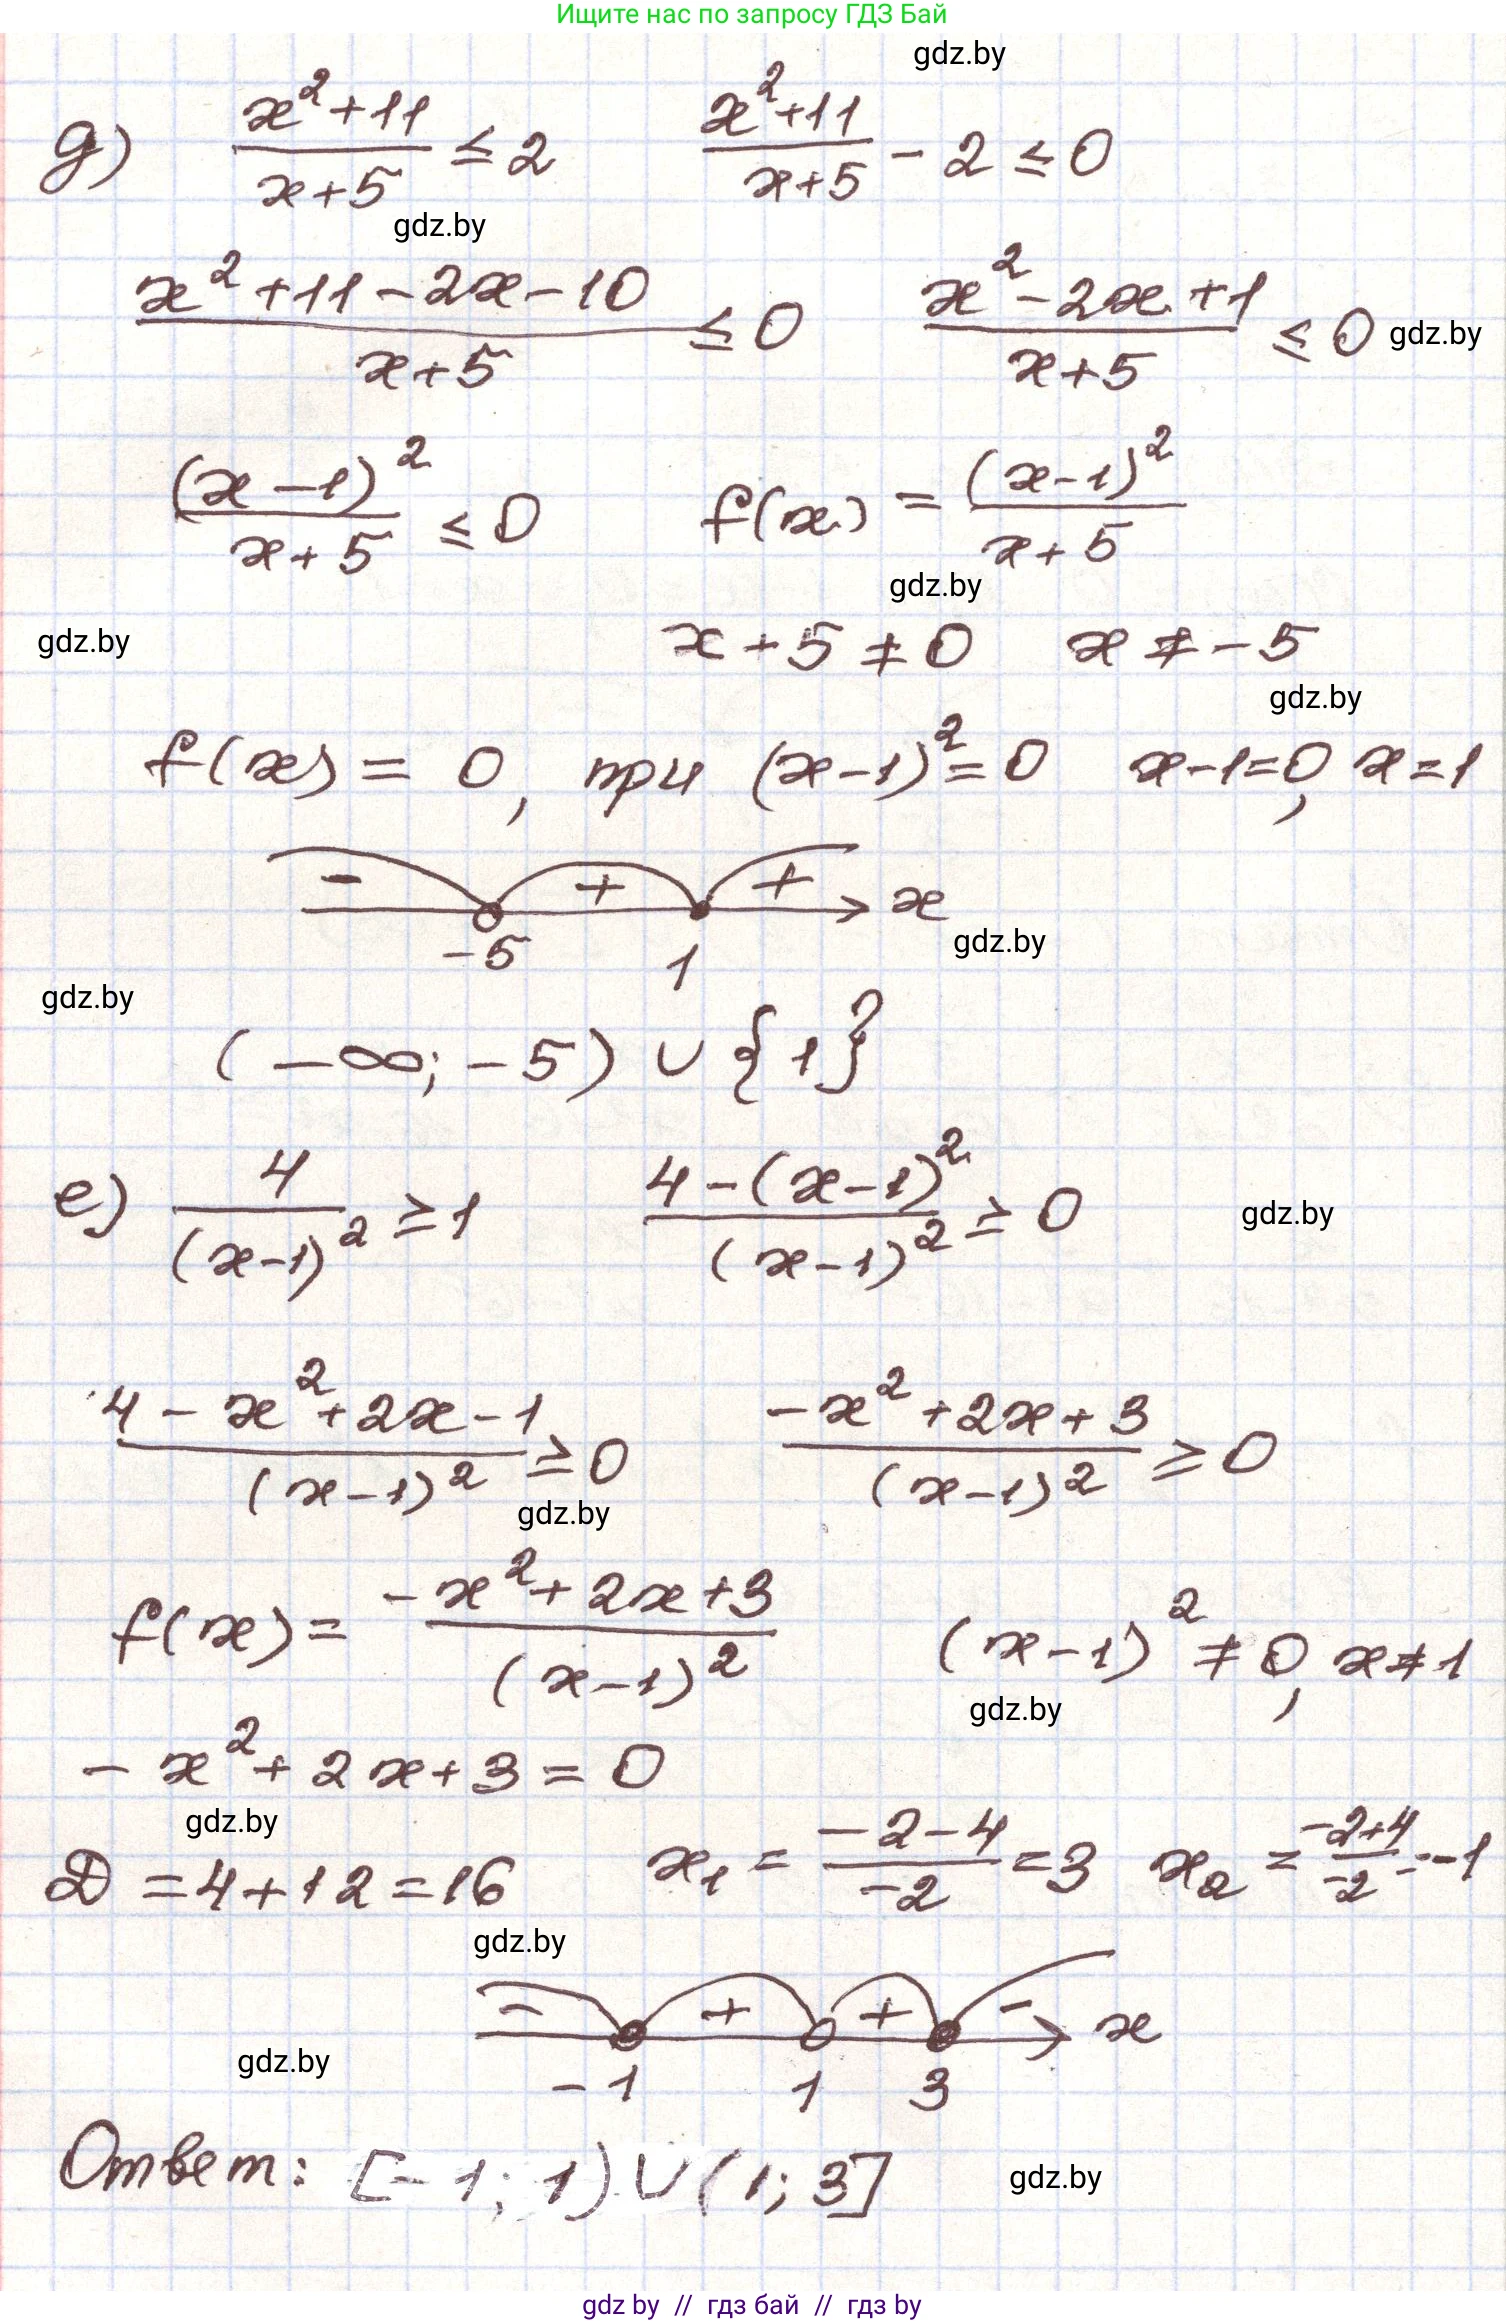 Ищите нас по запросу ГДЗ Бай
gdz.by
д) (x²+11)/(x+5) ≤ 2    (x²+11)/(x+5) - 2 ≤ 0
gdz.by
(x²+11-2x-10)/(x+5) ≤ 0    (x²-2x+1)/(x+5) ≤ 0 gdz.by
(x-1)²/(x+5) ≤ 0    f(x) = (x-1)²/(x+5)
gdz.by
gdz.by    x+5 ≠ 0    x ≠ -5
gdz.by
f(x) = 0, при (x-1)² = 0    x-1=0, x=1
- + + x
-5 1
gdz.by
gdz.by
(-∞; -5) ∪ {1}
е) 4/(x-1)² ≥ 1    (4-(x-1)²)/(x-1)² ≥ 0    gdz.by
(4-x²+2x-1)/(x-1)² ≥ 0    (-x²+2x+3)/(x-1)² ≥ 0
gdz.by
f(x) = (-x²+2x+3)/(x-1)²    (x-1)² ≠ 0, x ≠ 1
gdz.by
-x²+2x+3=0
gdz.by
D = 4+12 = 16    x₁ = (-2-4)/(-2) = 3    x₂ = (-2+4)/(-2) = -1
gdz.by
- + + - x
-1 1 3
gdz.by
Ответ: [-1; 1) ∪ (1; 3]    gdz.by
gdz by // гдз бай // гдз by